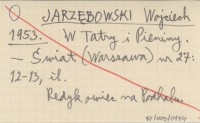 JARZĘBOWSKI Wojciech
1953. W Tatry i Pieniny.
– Świat (Warszawa) nr 27:
12-13, il.
Redyk owiec na Podhalu.